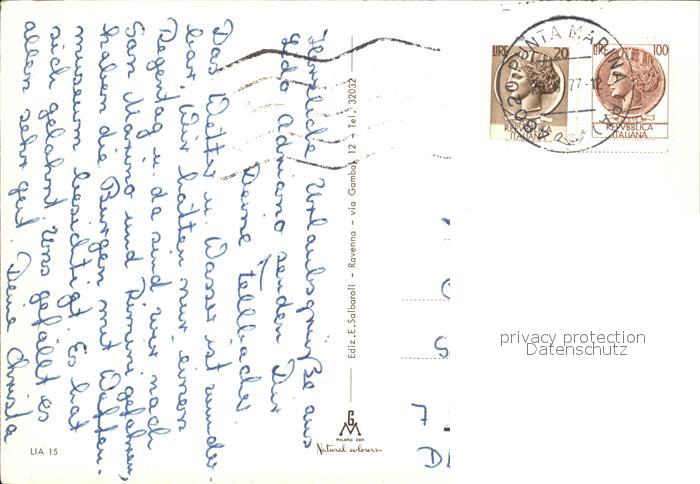 Herrliche Urlaubsgrüße aus
Lido Adriano senden Dir
Deine Fellbacher
Das Wetter u. Wasser ist wunder-
bar. Wir hatten nur einen
Regentag u. da sind wir nach
San Marino und Rimini gefahren,
haben die Burgen mit Waffen-
museum besichtigt. Es hat
sich gelohnt. Uns gefällt es
allen sehr gut. Deine Christa
LIA 15
Ediz. E. Salbaroli - Ravenna - via Gamba, 12 - Tel. 32032
MILANO
Natural colours
LIRE 20
REPVBBLICA
ITALIANA
LIRE 100
REPVBBLICA
ITALIANA
PUNTA MARINA
77
privacy protection
Datenschutz